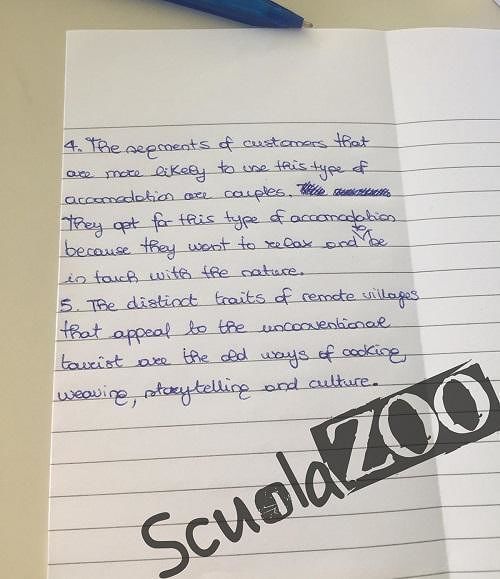 4. The segments of customers that
are more likely to use this type of
accomodation are couples.
They opt for this type of accomodation
because they want to relax and to be
in touch with the nature.
5. The distinct traits of remote villages
that appeal to the unconventional
tourist are the old ways of cooking,
weaving, storytelling and culture.
ScuolaZOO